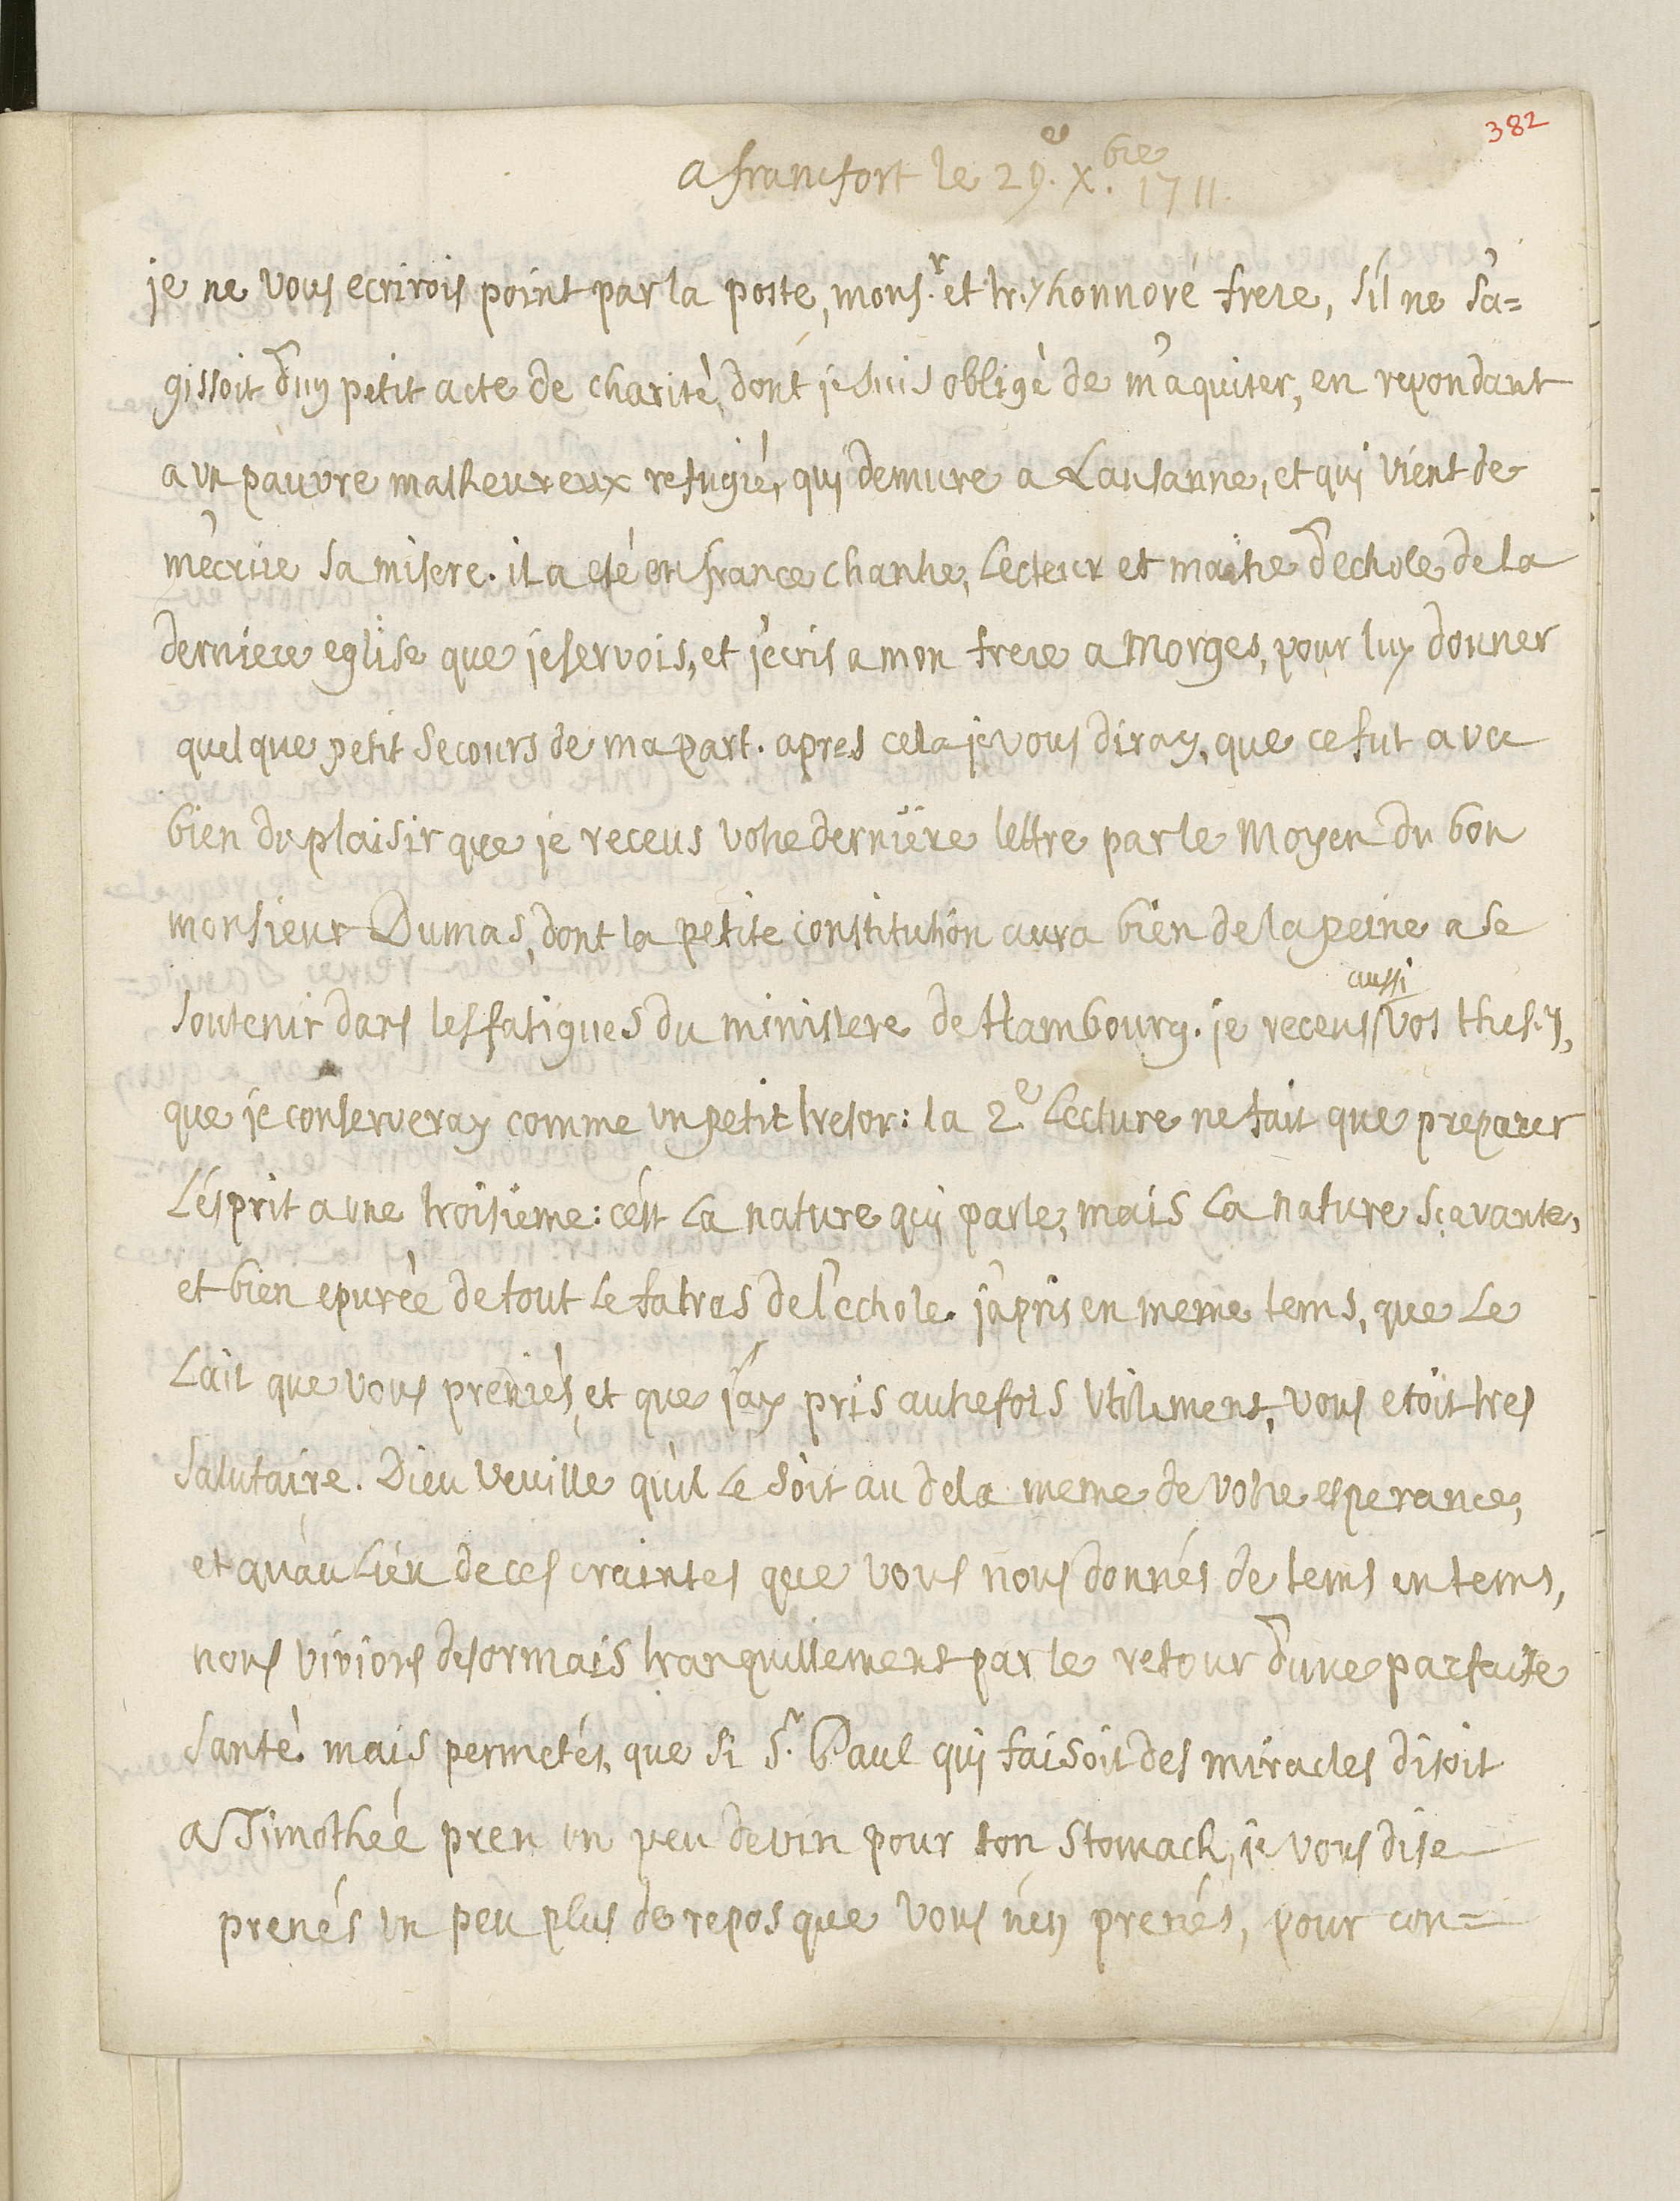 382
a francfort le 29.e X.bre 1711.
je ne vous ecrirois point par la poste, mons.r et tres honnoré frere, s'il ne s'a=
gissoit d'un petit acte de charité, dont je suis obligé de m'aquiter, en repondant
a un pauvre malheureux refugié, qui demure a Lausanne, et qui vient de
m'ecrire sa misere. il a eté en france chantre, Lecteur et maitre d'echole de la
derniere eglise que je servois, et j'ecris a mon frere a Morges, pour luy donner
quelque petit secours de ma part. apres cela je vous diray, que ce fut avec
bien du plaisir que je receus votre derniere lettre par le Moyen du bon
monsieur Dumas, dont la petite constitution aura bien de la peine a se
soutenir dans les fatigues du ministere de Hambourg. je receus aussi vos theses,
que je conserveray comme un petit tresor: la 2.e Lecture ne fait que preparer
L'esprit a une troisieme: c'est La nature qui parle, mais La nature sçavante,
et bien epurée de tout Le fatras de l'echole. j'apris en meme tems, que Le
Lait que vous preniés, et que j'ay pris autrefois Utilement, vous etoit tres
salutaire. Dieu veuille qu'il Le soit au dela meme de votre esperance,
et qu'au Lieu de ces craintes que vous nous donnés de tems en tems,
nous vivions desormais tranquillement par le retour d'une parfaite
santé. mais permetés, que si S.t Paul qui faisoit des miracles disoit
a Timothée pren un peu de vin pour ton stomach, je vous dise
prenés un peu plus de repos que vous n'en prenés, pour con=